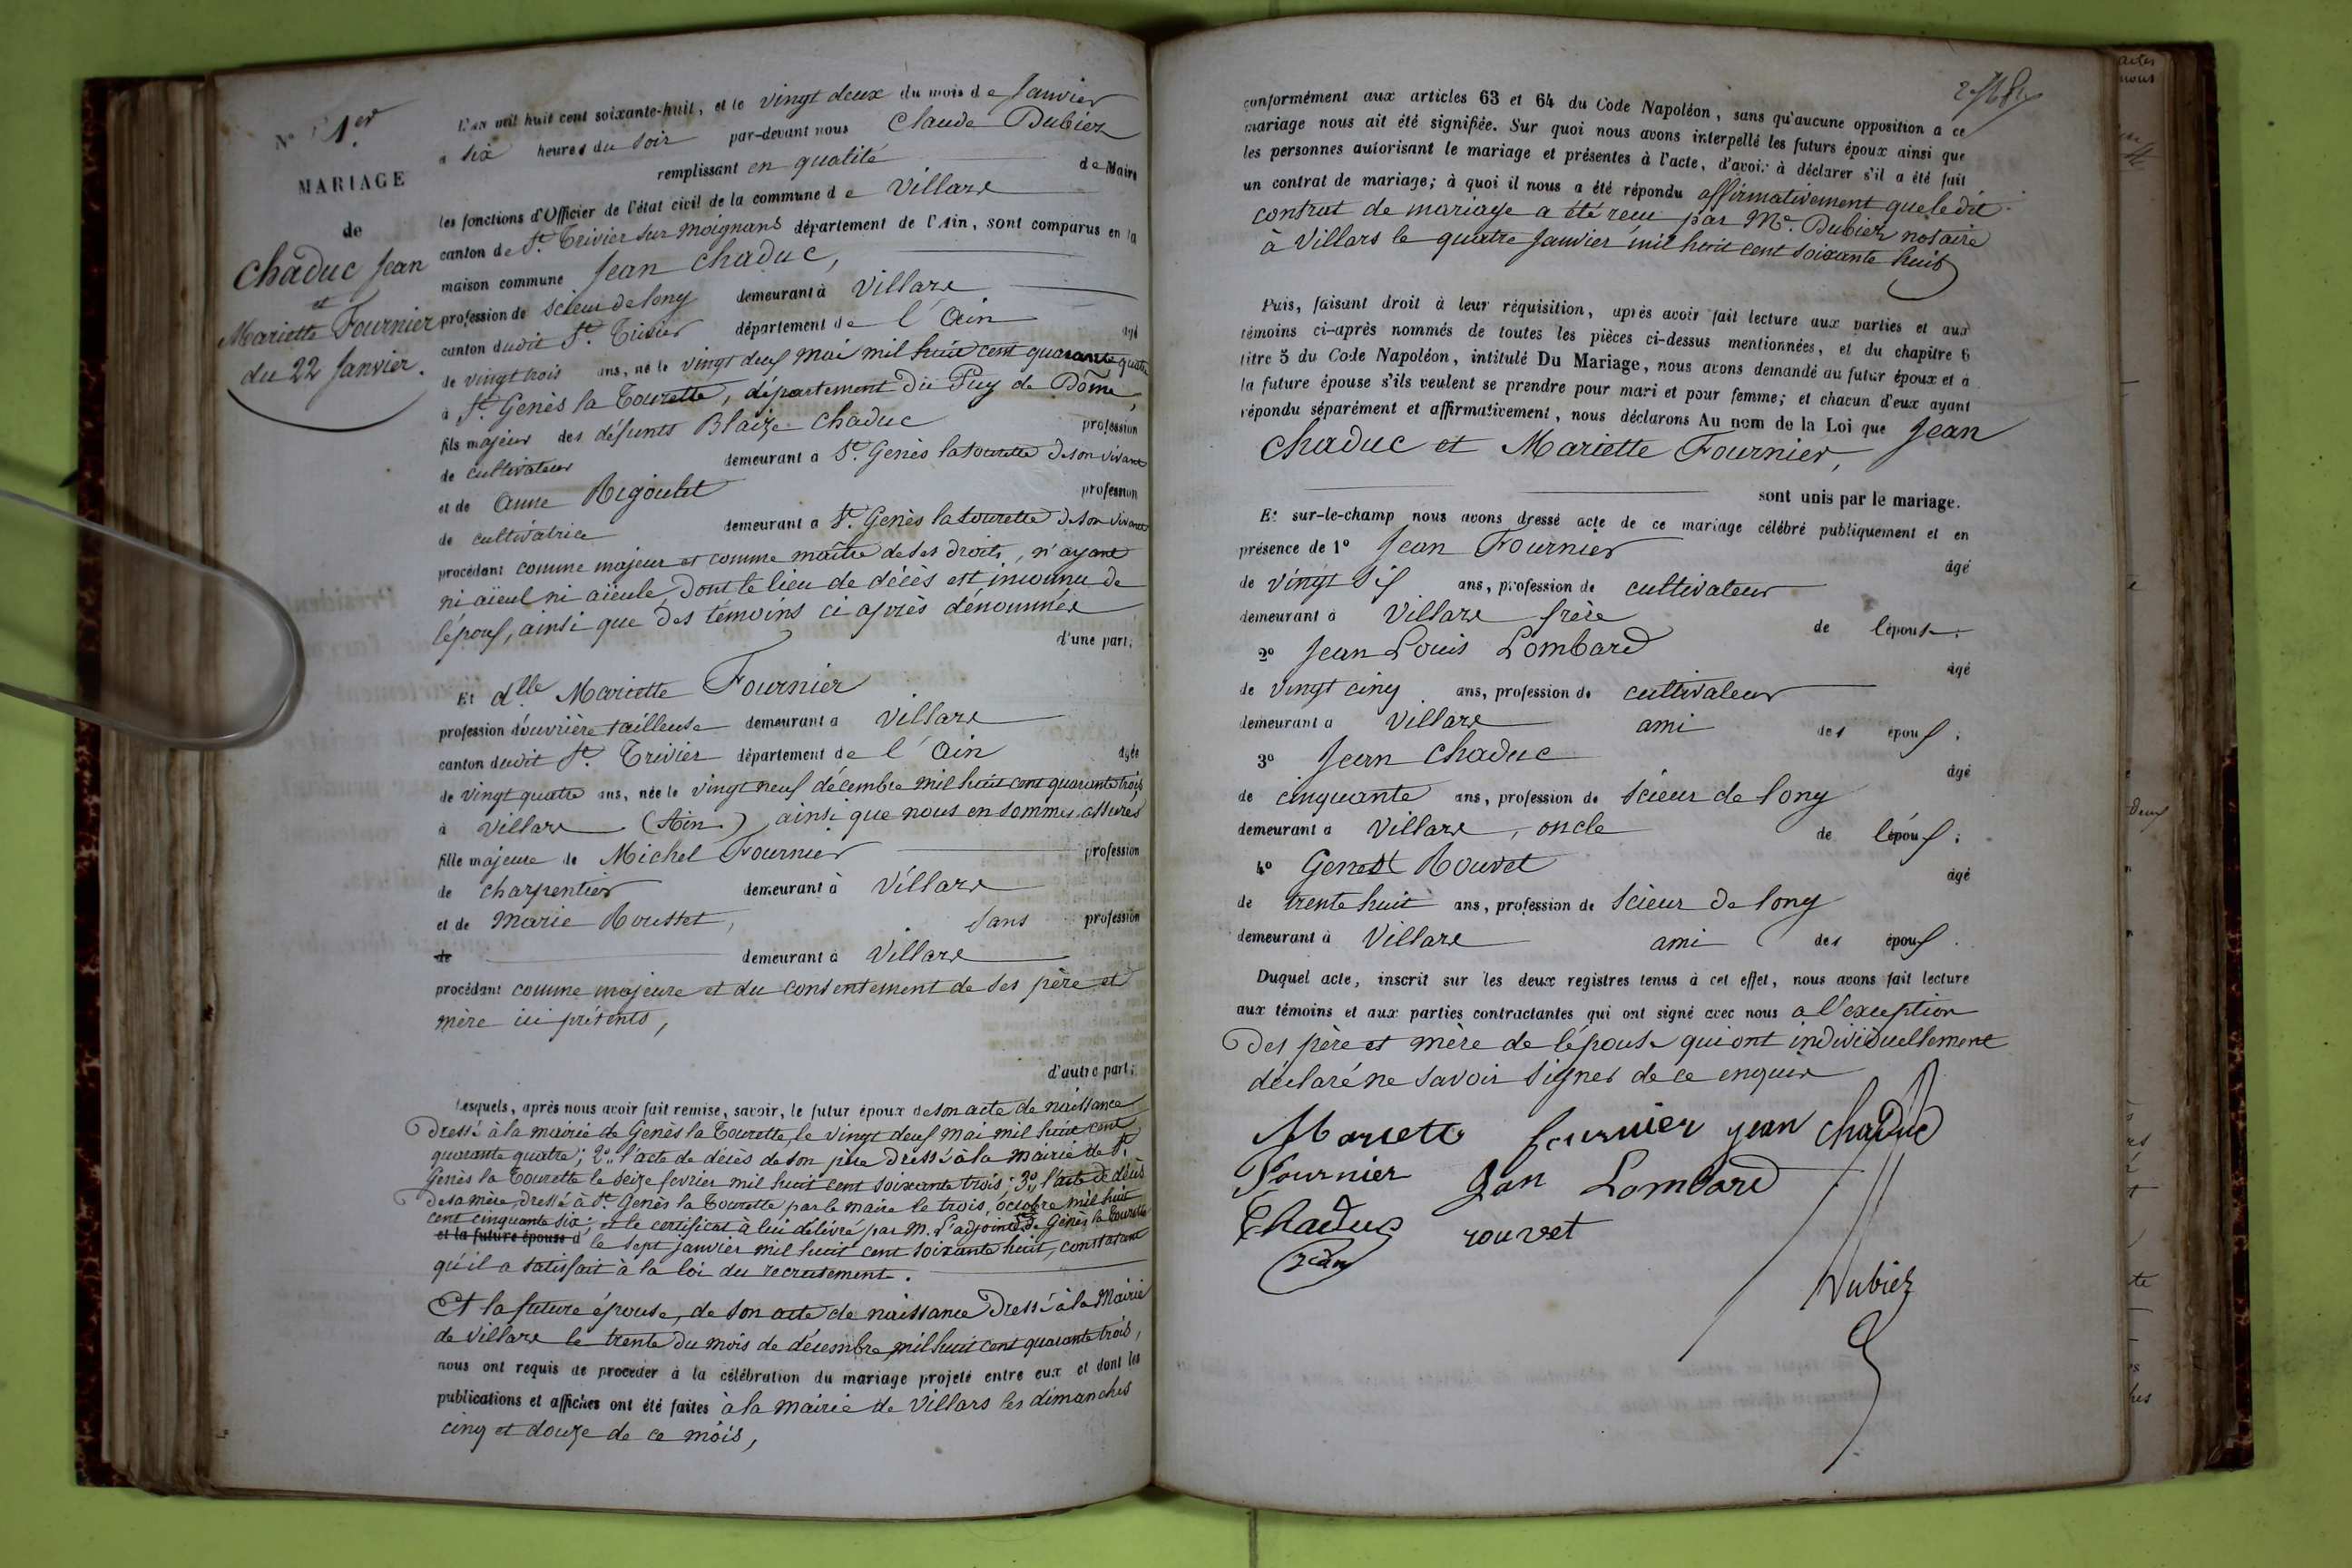 N° 1er
MARIAGE
de
Chaduc Jean
et
Mariette Fournier
du 22 Janvier.
L'an mil huit cent soixante-huit, et le vingt deux du mois de Janvier
à six heures du soir par-devant nous Claude Dubiez
remplissant en qualité de Maire
les fonctions d'Officier de l'état civil de la commune de Villars
canton de St. Trivier sur Moignans département de l'Ain, sont comparus en la
maison commune Jean Chaduc,
profession de scieur de long demeurant à Villars
canton dudit St. Trivier département de l'Ain âgé
de vingt trois ans, né le vingt deux mai mil huit cent quarante quatre
à St. Genès la Tourette, département du Puy de Dôme,
fils majeur des défunts Blaize Chaduc profession
de cultivateur demeurant à St. Genès la tourette de son vivant
et de Anne Rigoulet profession
de cultivatrice demeurant à St. Genès la tourette de son vivant
procédant comme majeur et comme maître de ses droits, n'ayant
ni aïeul ni aïeule, dont le lieu de décès est inconnu de
l'époux, ainsi que des témoins ci après dénommés
d'une part;
Et dlle Mariette Fournier
profession d'ouvrière tailleuse demeurant à Villars
canton dudit St. Trivier département de l'Ain âgée
de vingt quatre ans, née le vingt neuf décembre mil huit cent quarante trois
à Villars (Ain), ainsi que nous en sommes assurés
fille majeure de Michel Fournier profession
de charpentier demeurant à Villars
et de Marie Rousset, sans profession
de demeurant à Villars
procédant comme majeure et du consentement de ses père et
mère ici présents,
d'autre part;
Lesquels, après nous avoir fait remise, savoir, le futur époux de son acte de naissance
dressé à la mairie de Genès la Tourette, le vingt deux mai mil huit cent
quarante quatre; 2° l'acte de décès de son père dressé à la mairie de St.
Genès la Tourette le seize fevrier mil huit cent soixante trois; 3° l'acte de décès
de sa mère, dressé à St. Genès la Tourette par le maire le trois octobre mil huit
cent cinquante six; et le certificat à lui délivré par M. l'adjoint de Genès la Tourette
et la future épouse d le sept janvier mil huit cent soixante huit, constatant
qu'il a satisfait à la loi du recrutement.
Et la future épouse, de son acte de naissance dressé à la Mairie
de Villars le trente du mois de décembre mil huit cent quarante trois,
nous ont requis de procéder à la célébration du mariage projeté entre eux et dont les
publications et affiches ont été faites à la mairie de Villars les dimanches
cinq et douze de ce mois,
conformément aux articles 63 et 64 du Code Napoléon, sans qu'aucune opposition à ce
mariage nous ait été signifiée. Sur quoi nous avons interpellé les futurs époux ainsi que
les personnes autorisant le mariage et présentes à l'acte, d'avoir à déclarer s'il a été fait
un contrat de mariage; à quoi il nous a été répondu affirmativement que le dit
contrat de mariage a été reçu par Me. Dubiez notaire
à Villars le quatre Janvier mil huit cent soixante huit
Puis, faisant droit à leur réquisition, après avoir fait lecture aux parties et aux
témoins ci-après nommés de toutes les pièces ci-dessus mentionnées, et du chapitre 6
titre 5 du Code Napoléon, intitulé Du Mariage, nous avons demandé au futur époux et à
la future épouse s'ils veulent se prendre pour mari et pour femme; et chacun d'eux ayant
répondu séparément et affirmativement, nous déclarons Au nom de la Loi que Jean
Chaduc et Mariette Fournier,
sont unis par le mariage.
Et sur-le-champ nous avons dressé acte de ce mariage célébré publiquement et en
présence de 1° Jean Fournier âgé
de vingt six ans, profession de cultivateur
demeurant à Villars frère de l'épouse;
2° Jean Louis Lombard âgé
de vingt cinq ans, profession de cultivateur
demeurant à Villars ami des époux;
3° Jean Chaduc âgé
de cinquante ans, profession de scieur de long
demeurant à Villars, oncle de l'époux;
4° Genest Rouvet âgé
de trente huit ans, profession de scieur de long
demeurant à Villars ami des époux.
Duquel acte, inscrit sur les deux registres tenus à cet effet, nous avons fait lecture
aux témoins et aux parties contractantes qui ont signé avec nous à l'exception
des père et mère de l'épouse qui ont individuellement
déclaré ne savoir signer de ce enquis
Mariette fournier jean chaduc
Fournier Jan Lombard
Chaduc rouvet
jean
Dubiez